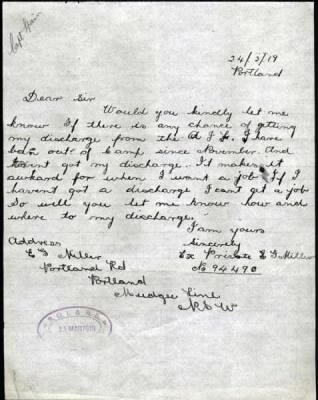 24/3/19
Portland
Dear Sir
Would you kindly let me
know If there is any chance of getting
my discharge from the A I F. I have
ben out of Camp since November. And
havint got my discharge. It makes it
aukard for when I want a job If I
havent got a discharge I cant get a job
So will you let me know how and
where to my discharge.
I am yours
Sincerely
Ex Private E G Miller
No 94490
Address
E G Miller
Portland Rd
Portland
Mudgee Line
N S W